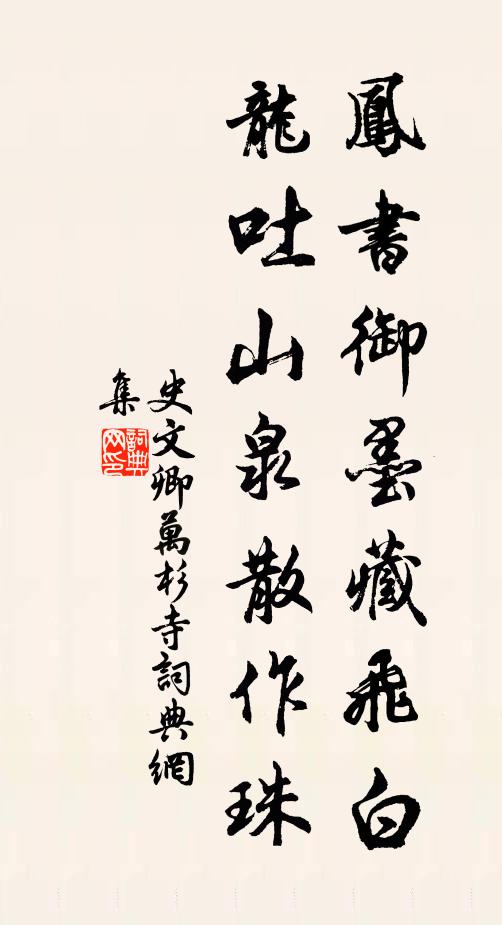 鳳書御墨藏飛白
龍吐山泉散作珠
史文卿萬杉寺詞典網
集
詞典
网印